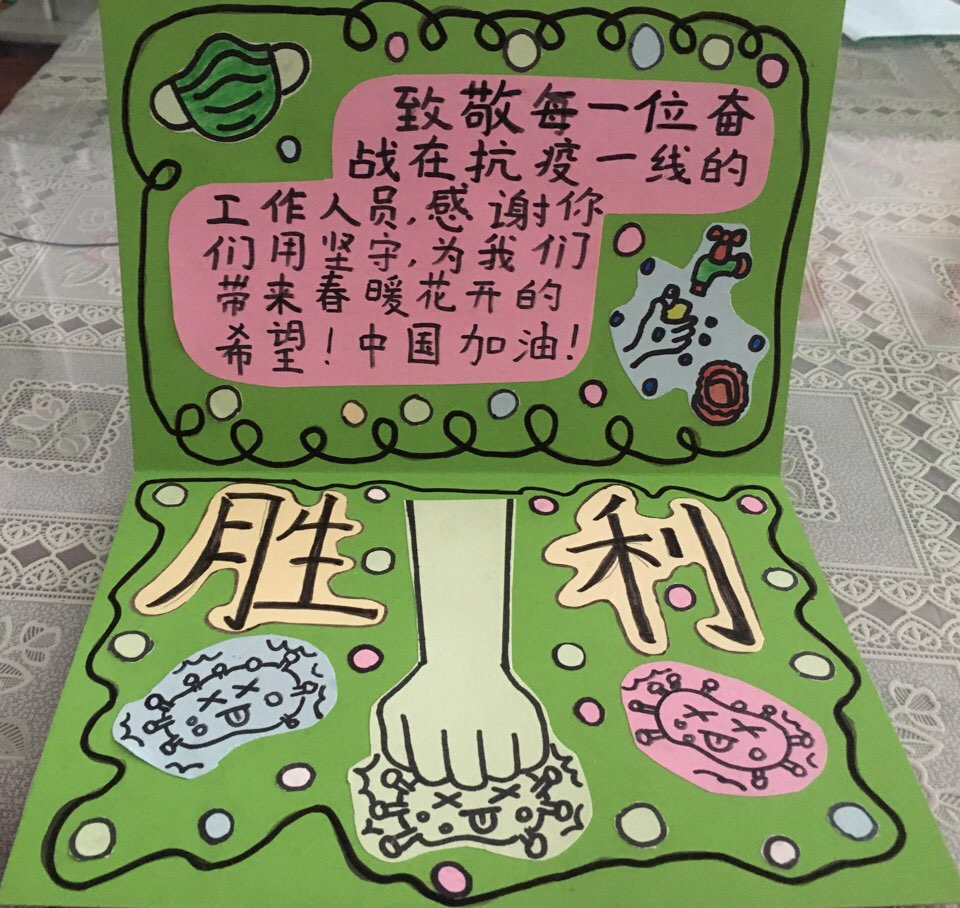 致敬每一位奋
战在抗疫一线的
工作人员,感谢你
们用坚守,为我们
带来春暖花开的
希望!中国加油!
胜利